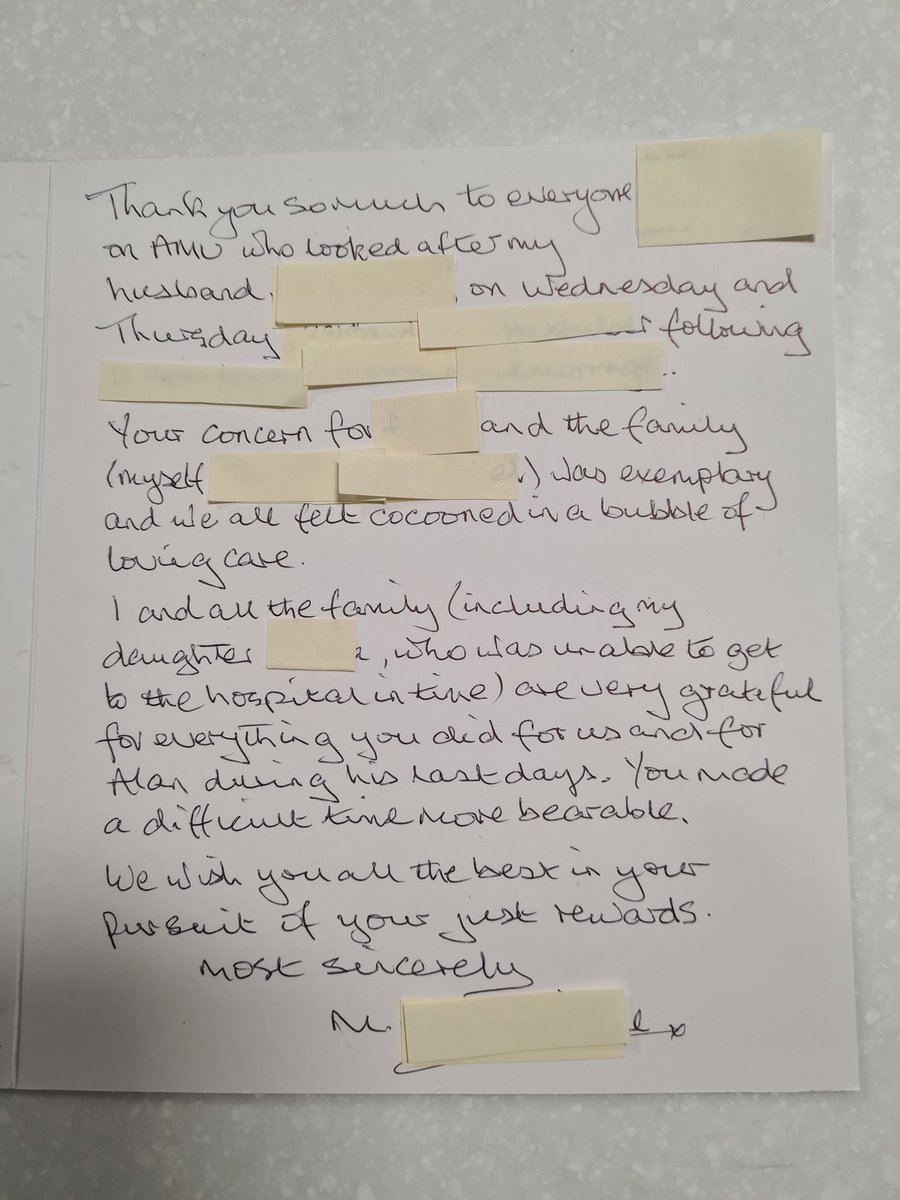 Thank you so much to everyone
on AMU who looked after my
husband, , on Wednesday and
Thursday following
Your concern for and the family
(myself ) was exemplary
and we all felt cocooned in a bubble of
loving care.
I and all the family (including my
daughter a, who was unable to get
to the hospital in time) are very grateful
for everything you did for us and for
Alan during his last days. You made
a difficult time more bearable.
We wish you all the best in your
pursuit of your just rewards.
Most sincerely
M. x